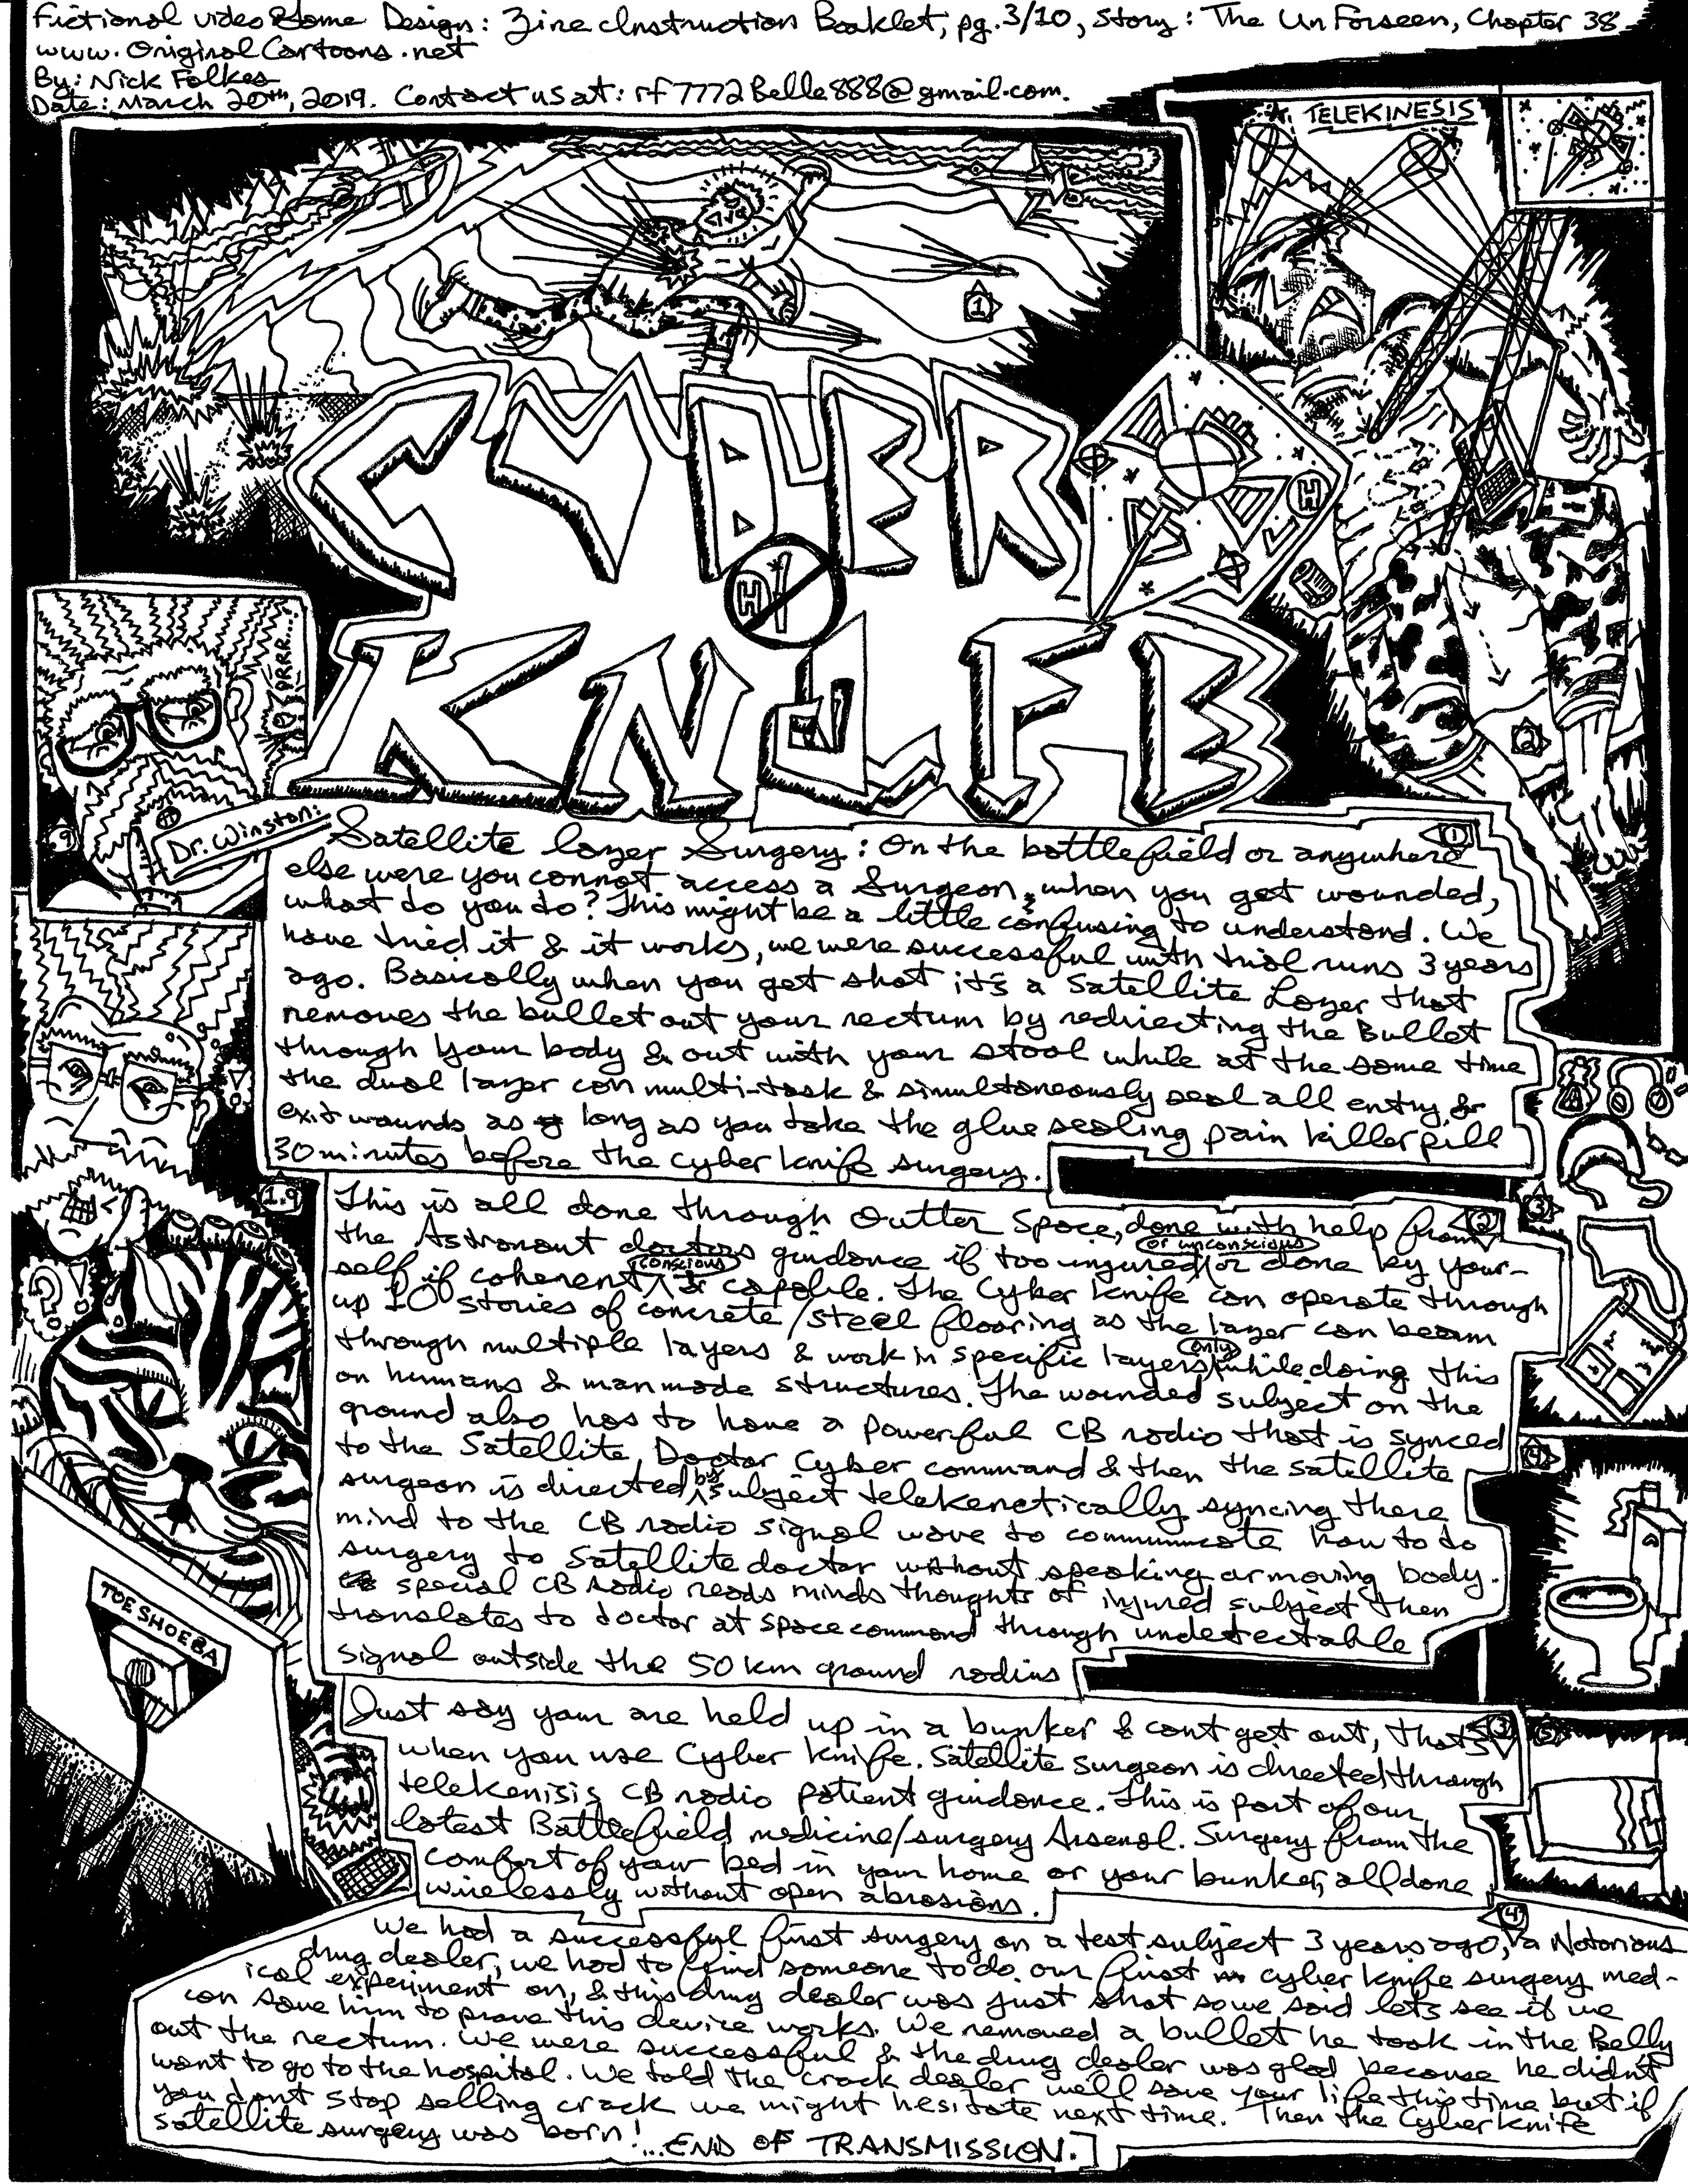 Fictional video Game Design: Zine Instruction Booklet, pg. 3/10, Story: The UnForseen, Chapter 38
www.OriginalCartoons.net
By: Nick Folkes
Date: March 20th, 2019. Contact us at: rf7772Belle888@gmail.com.
TELEKINESIS
1
CYBER
H
H
KNIFE
GRRRR....
2
.9
Dr. Winston:
1
Satellite lazer Surgery: On the battlefield or anywhere
else were you cannot access a Surgeon, when you get wounded,
what do you do? This might be a little confusing to understand. We
have tried it & it works, we were successful with trial runs 3 years
ago. Basically when you get shot it's a Satellite Lazer that
removes the bullet out your rectum by redirecting the Bullet
through your body & out with your stool while at the same time
the dual lazer can multi-task & simultaneously seal all entry &
exit wounds as long as you take the glue sealing pain killer pill
30 minutes before the cyber knife surgery.
1.9
2
3
This is all done through Outter Space, done with help from
the Astronaut doctors guidance if too injured or unconscious or done by your-
self if coherent conscious & capable. The Cyber Knife can operate through
up 10 stories of concrete/steel flooring as the lazer can beam
through multiple layers & work in specific layers only while doing this
on humans & manmade structures. The wounded subject on the
ground also has to have a powerful CB radio that is synced
to the Satellite Doctor Cyber command & then the satellite
surgeon is directed by subject telekenetically syncing there
mind to the CB radio signal wave to communicate how to do
surgery to Satellite doctor without speaking or moving body.
special CB radio reads minds thoughts of injured subject then
translates to doctor at space command through undetectable
signal outside the 50 km ground radius
4
TOE SHOEBA
3
5
Just say your are held up in a bunker & cant get out, thats
when you use Cyber Knife. Satellite surgeon is directed through
telekenisis CB radio patient guidance. This is part of our
latest Battlefield medicine/surgery Arsenal. Surgery from the
comfort of your bed in your home or your bunker, all done
wirelessly without open abrasions.
4
We had a successful first surgery on a test subject 3 years ago, a Notorious
drug dealer, we had to find someone to do our first cyber knife surgery med-
ical experiment on, & this drug dealer was just shot so we said lets see if we
can save him to prove this device works. We removed a bullet he took in the Belly
out the rectum. We were successful & the drug dealer was glad because he didn't
want to go to the hospital. We told the crack dealer we'll save your life this time but if
you dont stop selling crack we might hesitate next time. Then the Cyber knife
satellite surgery was born! ...END OF TRANSMISSION.]